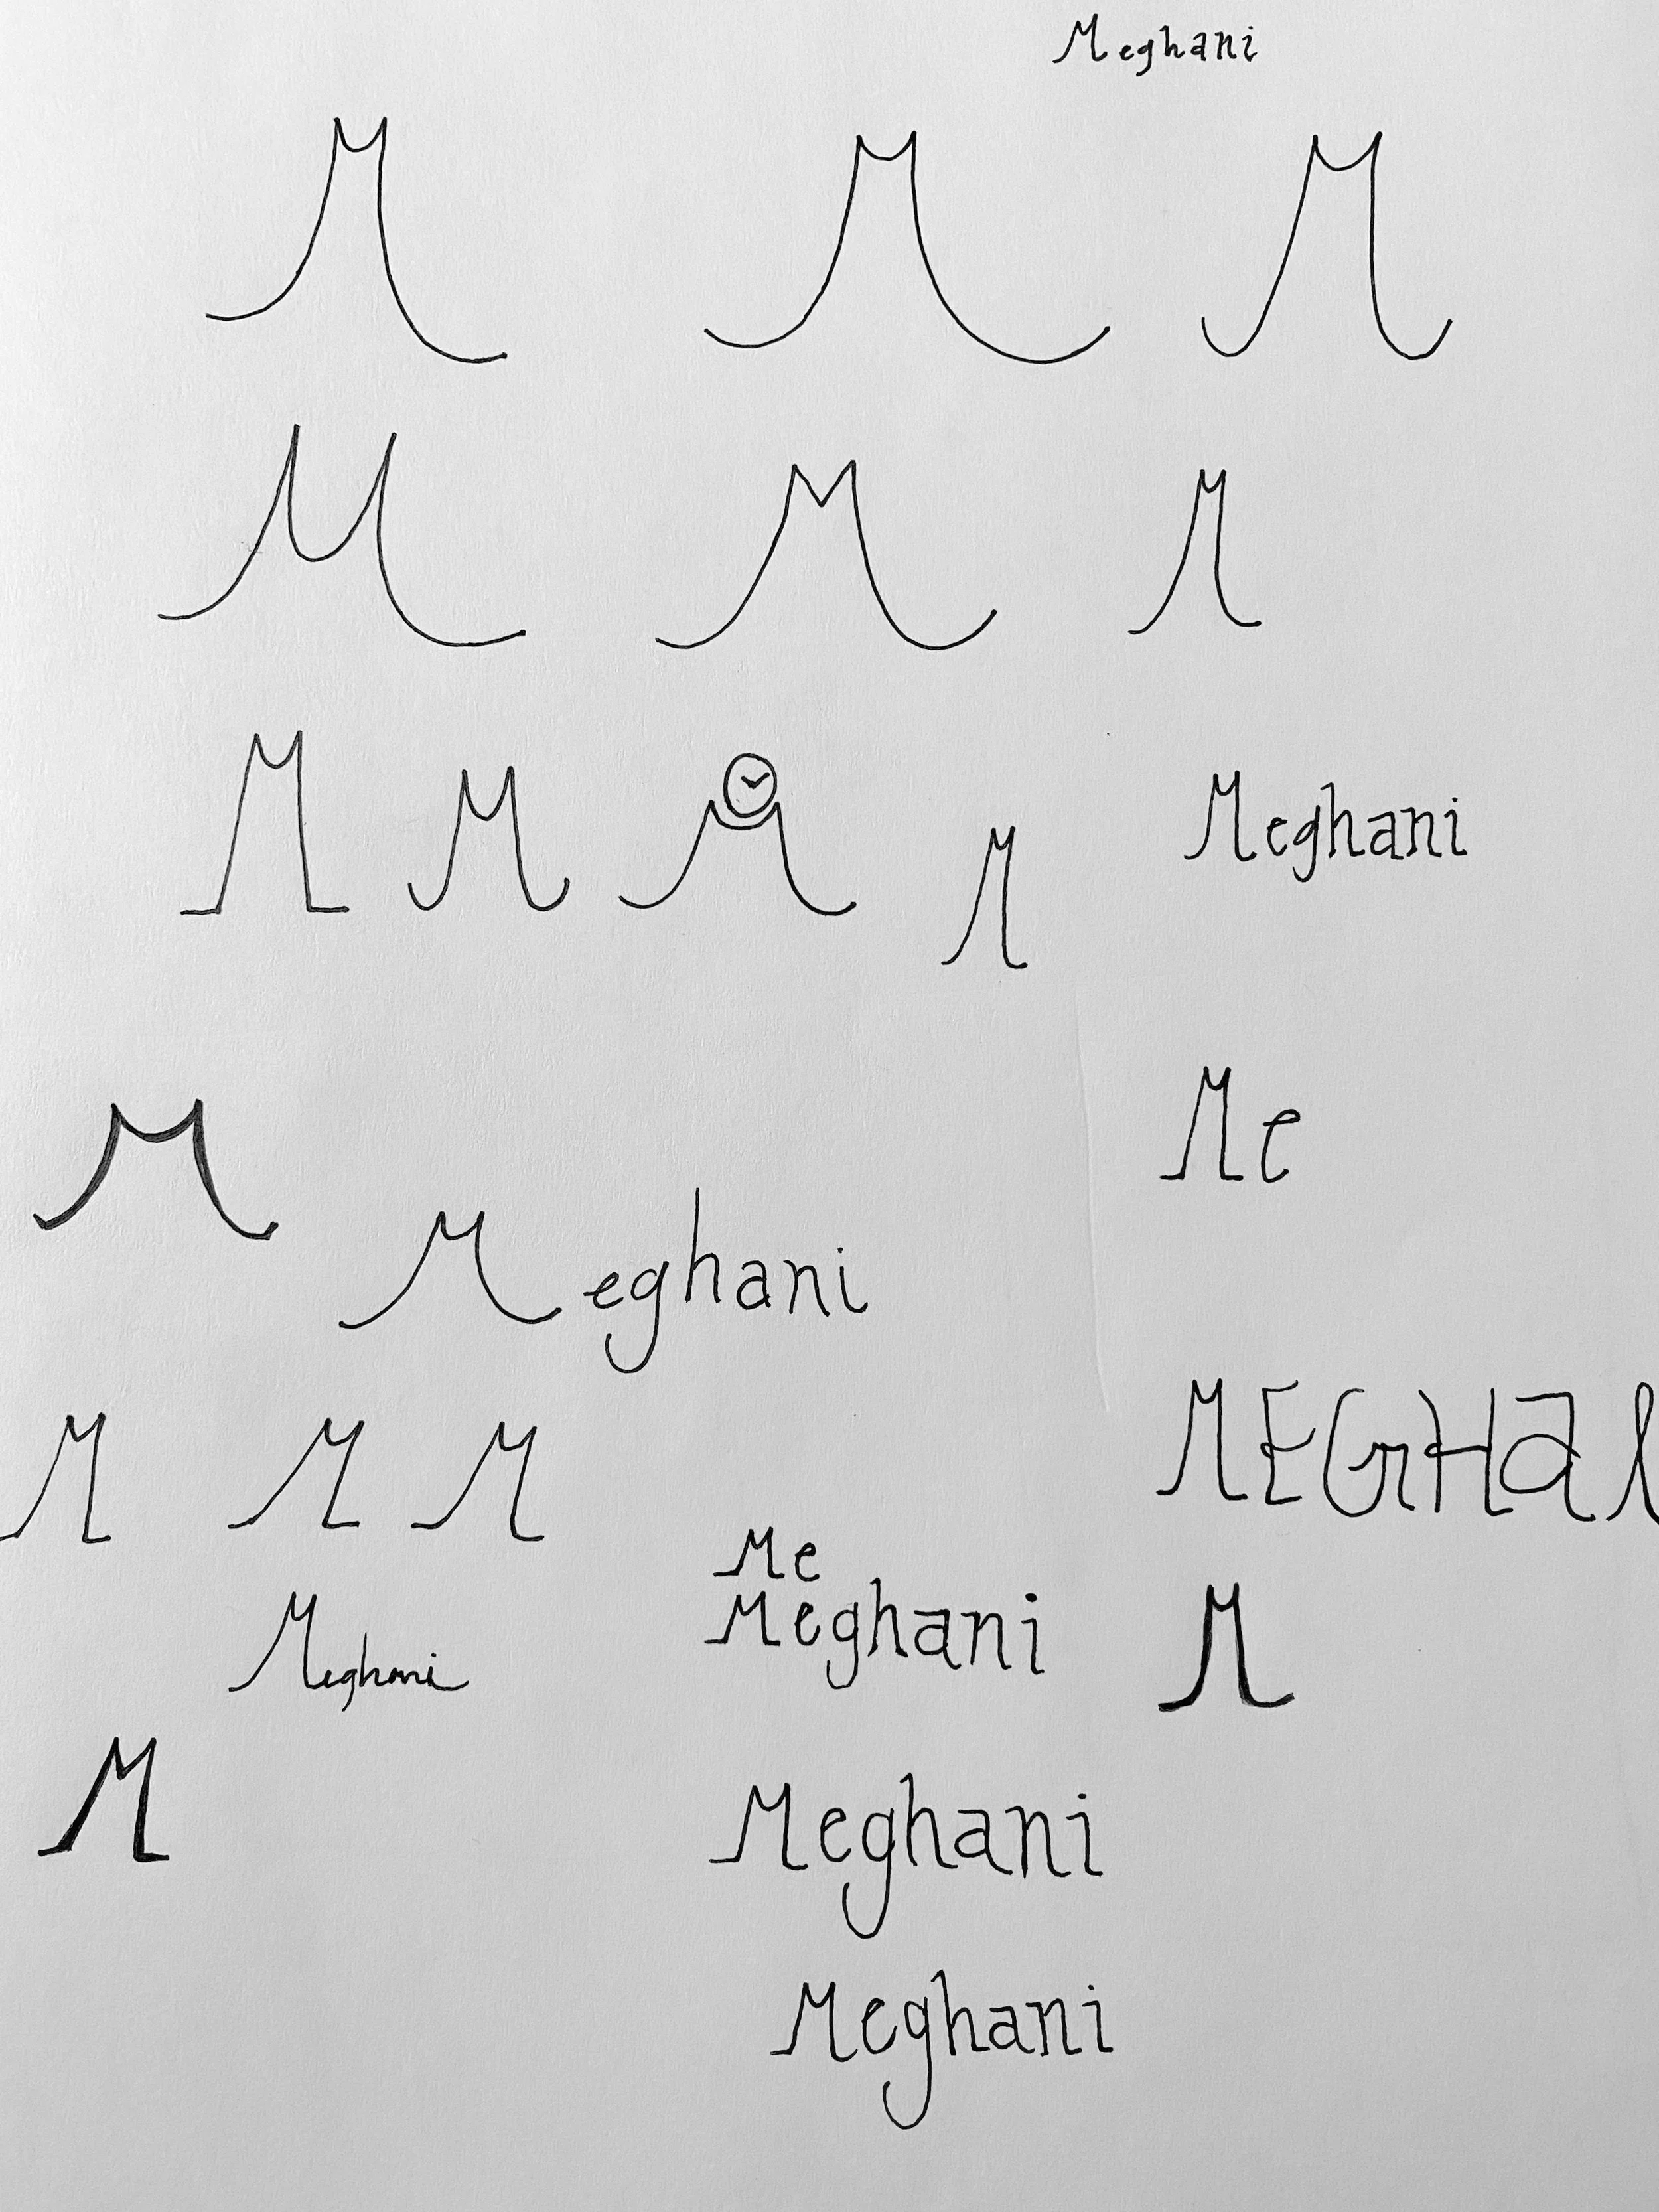 Meghani
M M M
M M M
M M M M Meghani
M Me
Meghani
M M M MEGHA
Me
Meghani Meghani M
M Meghani
Meghani